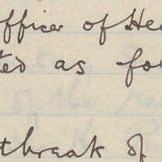 officer of He
ted as fo
tbreak of